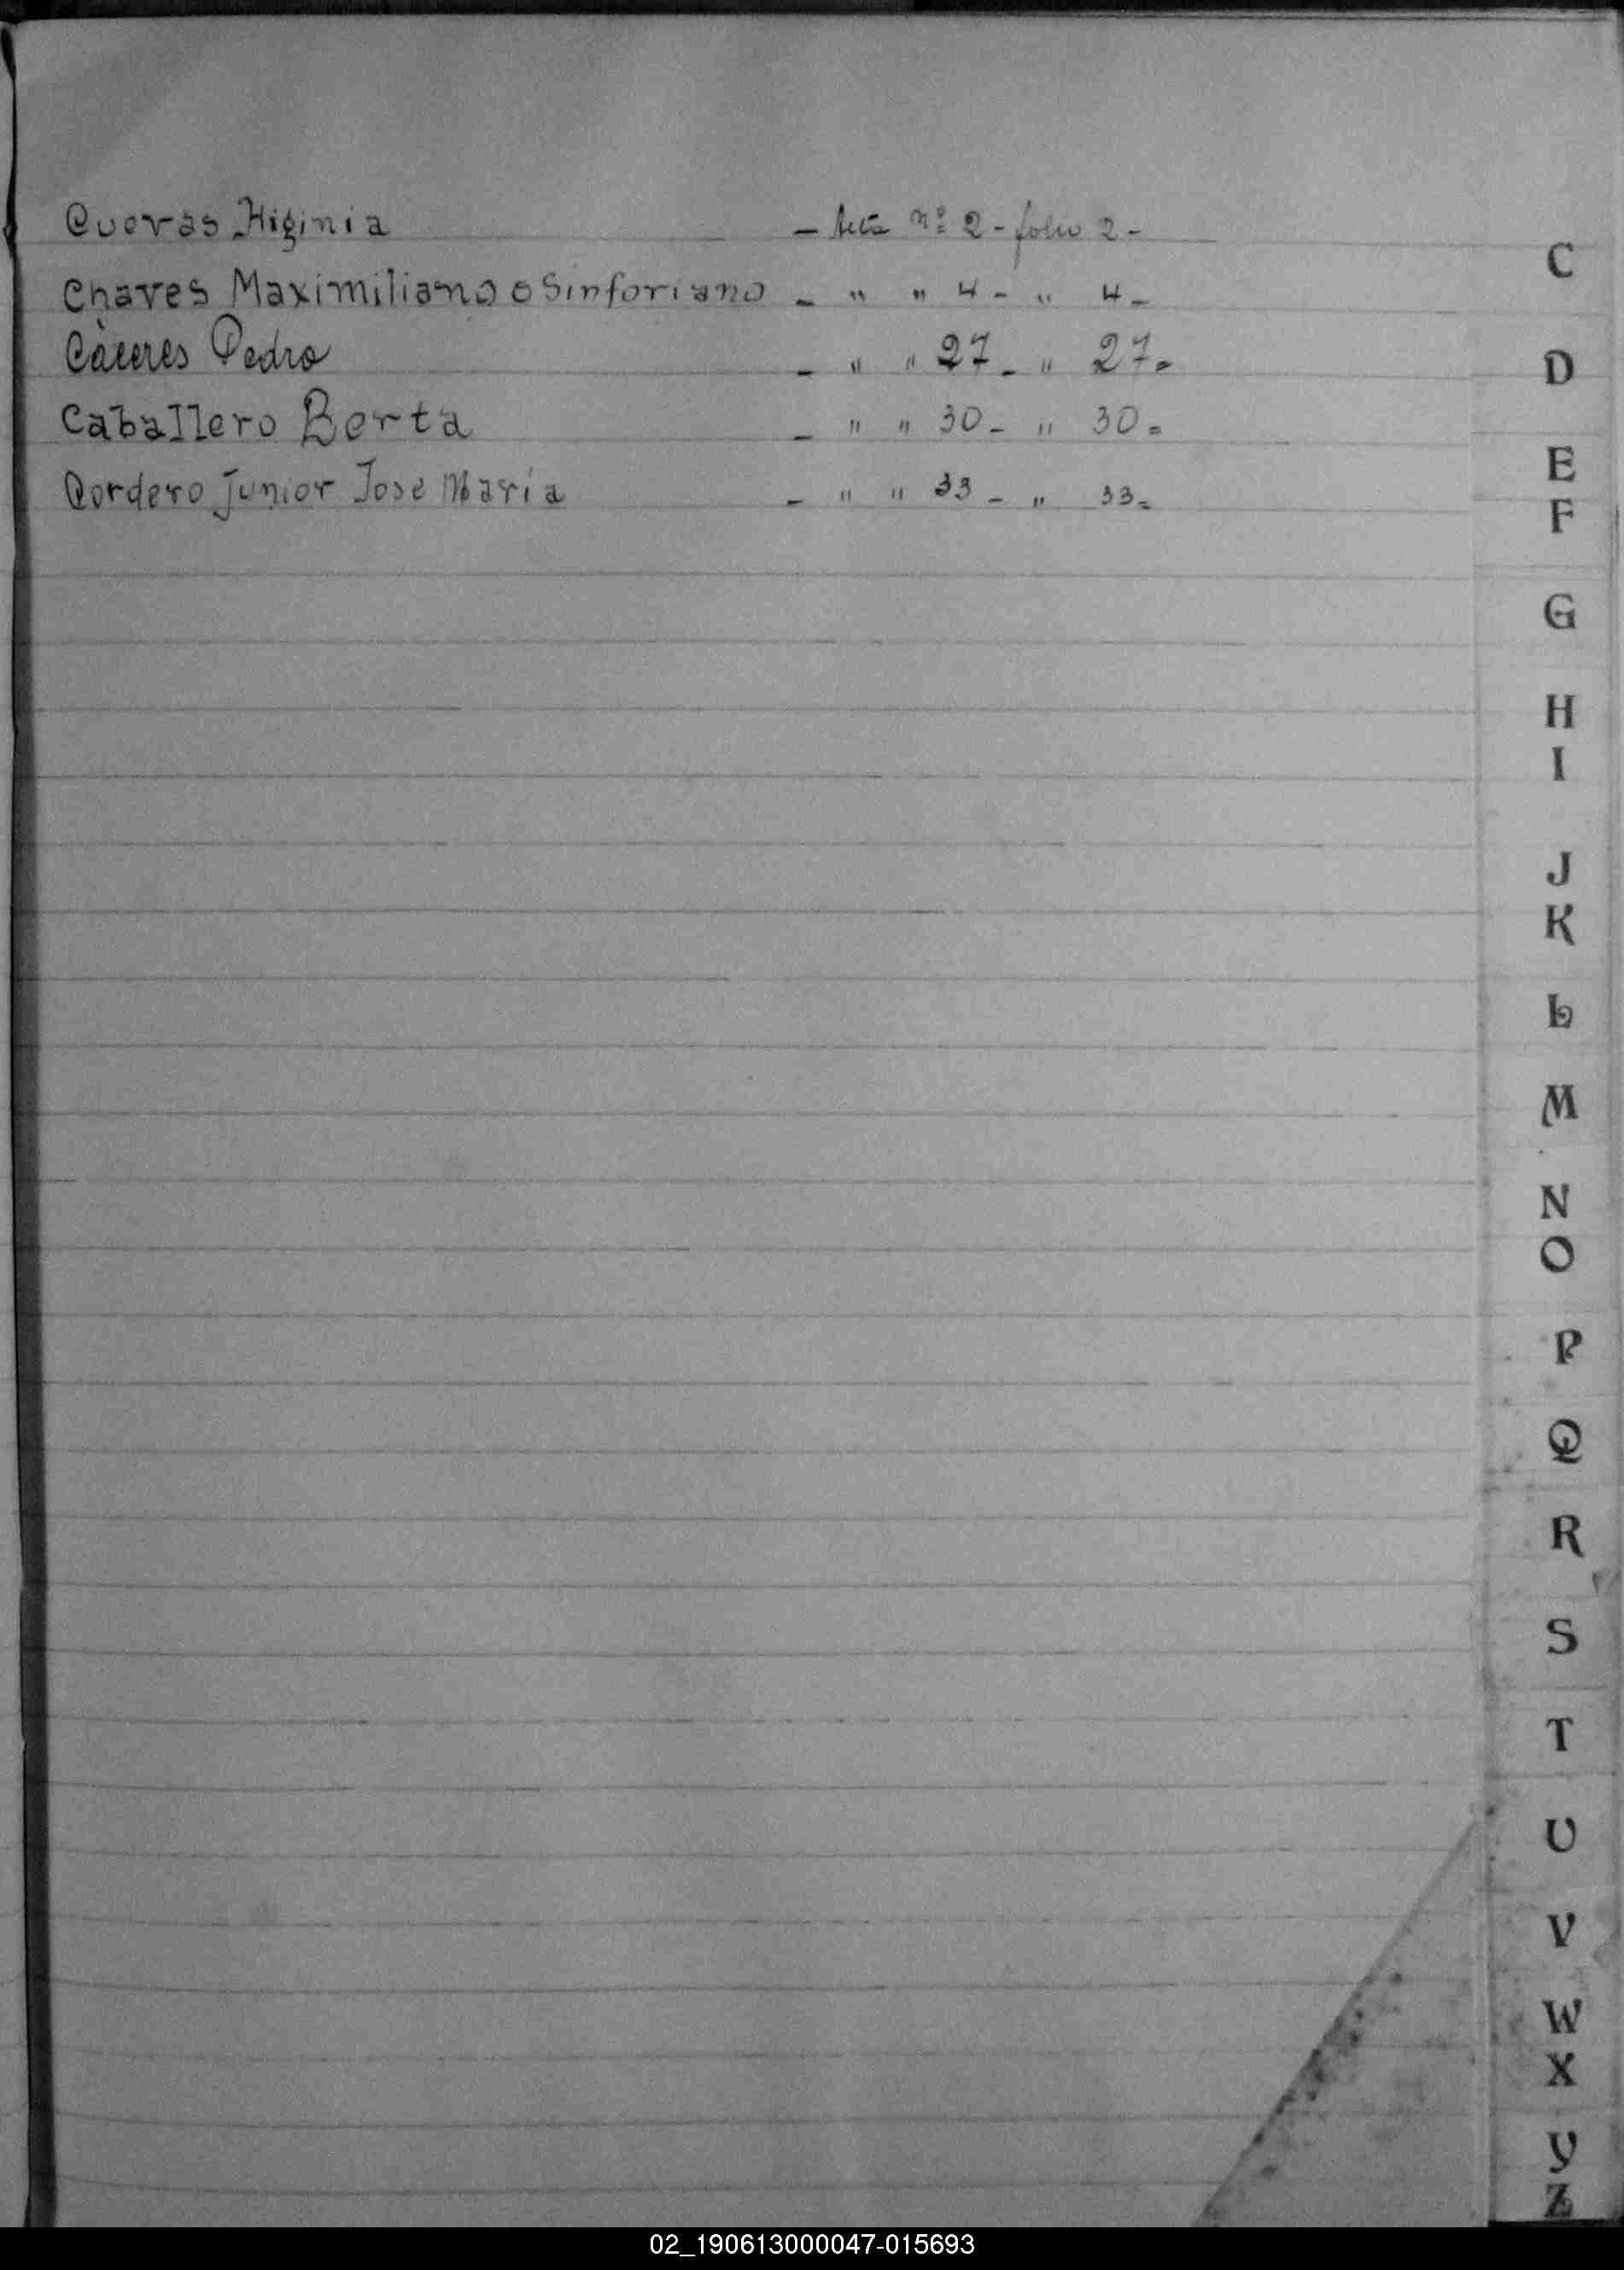 Cuevas Higinia - Acta nº 2 - folio 2 -
Chaves Maximiliano o Sinforiano - " " 4 - " 4 -
Càceres Pedro - " " 27 - " 27 =
Caballero Berta - " " 30 - " 30 =
Cordero Junior Jose Maria - " " 33 - " 33 =
C
D
E
F
G
H
I
J
K
L
M
N
O
P
Q
R
S
T
U
V
W
X
Y
Z
02_190613000047-015693